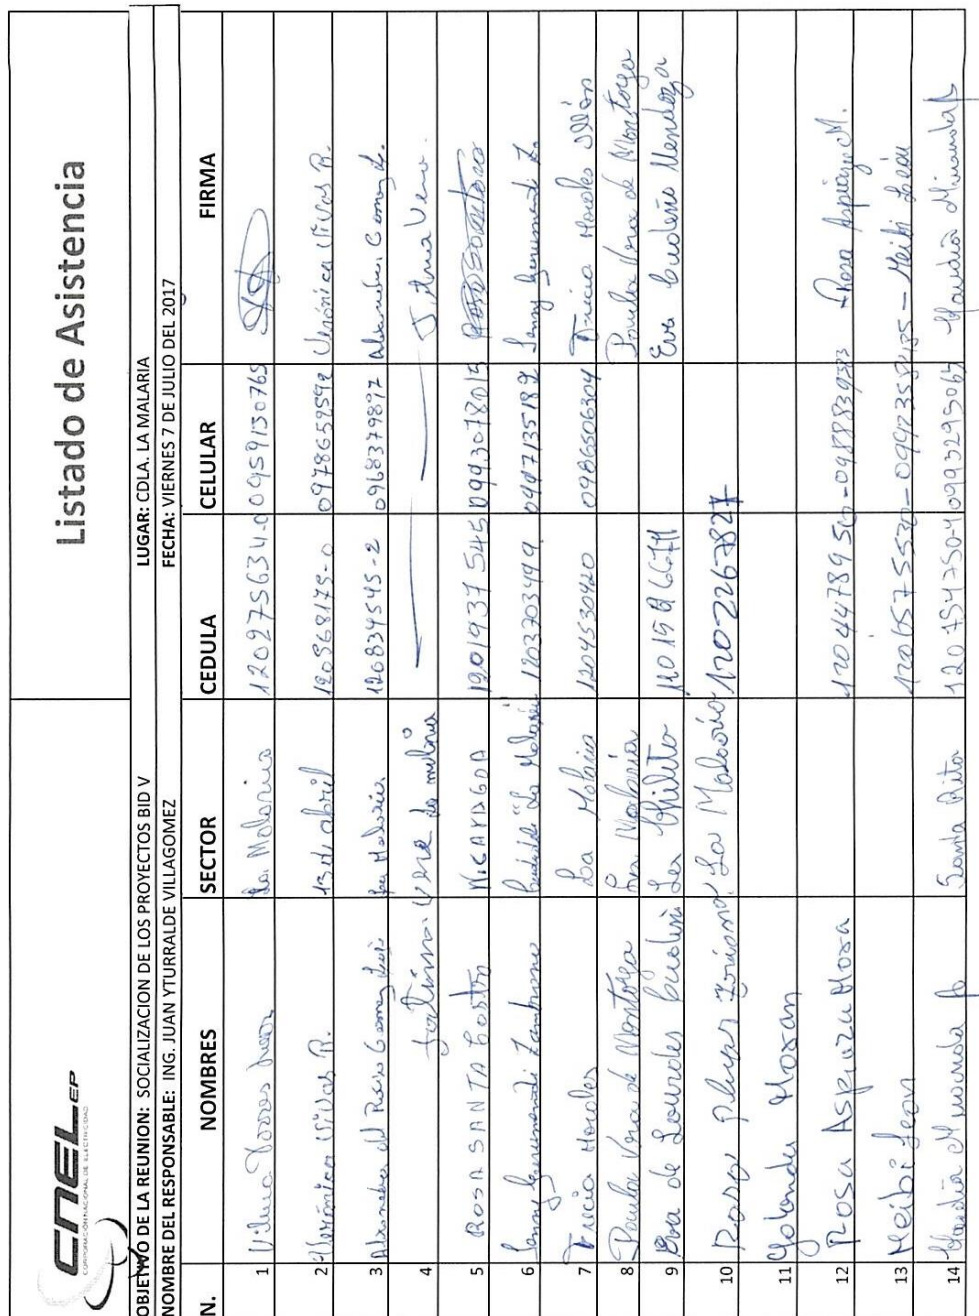 CNEL EP
CORPORACIÓN NACIONAL DE ELECTRICIDAD
Listado de Asistencia
OBJETIVO DE LA REUNION: SOCIALIZACION DE LOS PROYECTOS BID V
LUGAR: CDLA. LA MALARIA
NOMBRE DEL RESPONSABLE: ING. JUAN YTURRALDE VILLAGOMEZ
FECHA: VIERNES 7 DE JULIO DEL 2017
N. NOMBRES SECTOR CEDULA CELULAR FIRMA
1 Vilma La Malaria 120275634-0 0959130765
2 Verónica Vivas R. 13 de abril 120568175-0 0978659592 Verónica Vivas R.
3 Alexandra del Rocio Gomez La Malaria 120834545-2 0968379897 Alexandra Gomez
4 Fatima Vera La malaria Fatima Vera.
5 ROSA SANTA Castro NICARAGUA 1201937545 0993078015
6 Jenny Zambrano La Malaria 1203703499 0987135182 Jenny
7 Tricia Morales La Malaria 1204530420 0986506304 Tricia Morales
8 Paula Vera de Montoya La Malaria Paula Vera de Montoya
9 Eva de Lourdes Cedeño La 120 Eva Cedeño Mendoza
10 Rosa La Malaria 1202267827
11 Yolanda Moran
12 ROSA Aspiazu Mora 1204478950 - 0988839383 Rosa Aspiazu M.
13 Meibi Leon 1206575530 - 0992358485 - Meibi León
14 Claudia Miranda Santa Rita 120154250-4 0993295065 Claudia Miranda